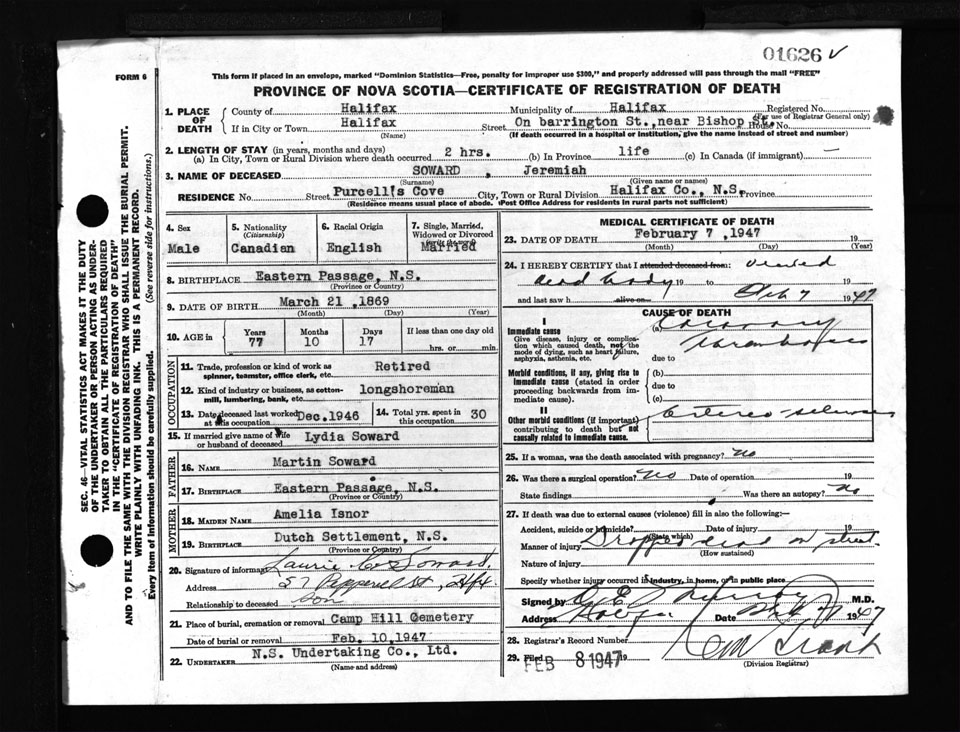 01626 ✓
FORM 6
This form if placed in an envelope, marked "Dominion Statistics—Free, penalty for improper use $300," and properly addressed will pass through the mail "FREE"
PROVINCE OF NOVA SCOTIA—CERTIFICATE OF REGISTRATION OF DEATH
1. PLACE OF DEATH
County of Halifax Municipality of Halifax Registered No.
(For use of Registrar General only)
If in City or Town Halifax Street On barrington St., near Bishop St. House No.
(Name) (If death occurred in a hospital or institution, give the name instead of street and number)
2. LENGTH OF STAY (in years, months and days)
(a) In City, Town or Rural Division where death occurred 2 hrs. (b) In Province life (c) In Canada (if immigrant) —
3. NAME OF DECEASED SOWARD , Jeremiah
(Surname) (Given name or names)
RESIDENCE No. Street Purcell's Cove City, Town or Rural Division Halifax Co., N.S. Province
(Residence means usual place of abode. Post Office Address for residents in rural parts not sufficient)
4. Sex
Male
5. Nationality
(Citizenship)
Canadian
6. Racial Origin
English
7. Single, Married, Widowed or Divorced
(write the word)
Married
8. BIRTHPLACE Eastern Passage, N.S.
(Province or Country)
9. DATE OF BIRTH March 21, 1869
(Month) (Day) (Year)
10. AGE in
Years Months Days If less than one day old
77 10 17 hrs. or min.
OCCUPATION
11. Trade, profession or kind of work as spinner, teamster, office clerk, etc. Retired
12. Kind of industry or business, as cotton-mill, lumbering, bank, etc. longshoreman
13. Date deceased last worked at this occupation Dec. 1946
14. Total yrs. spent in this occupation 30
15. If married give name of wife or husband of deceased Lydia Soward
FATHER
16. NAME Martin Soward
17. BIRTHPLACE Eastern Passage, N.S.
(Province or Country)
MOTHER
18. MAIDEN NAME Amelia Isnor
19. BIRTHPLACE Dutch Settlement, N.S.
(Province or Country)
20. Signature of informant Laurie Soward
Address 57 Pepperell St, Hfx
Relationship to deceased Son
21. Place of burial, cremation or removal Camp Hill Cemetery
Date of burial or removal Feb. 10, 1947
22. UNDERTAKER N.S. Undertaking Co., Ltd.
(Name and address)
MEDICAL CERTIFICATE OF DEATH
23. DATE OF DEATH February 7, 1947 19
(Month) (Day) (Year)
24. I HEREBY CERTIFY that I attended deceased from: viewed
dead body 19 to Feb 7 1947
and last saw h alive on
CAUSE OF DEATH
I
Immediate cause
Give disease, injury or complication which caused death, not the mode of dying, such as heart failure, asphyxia, asthenia, etc.
(a) Coronary
thrombosis
due to
Morbid conditions, if any, giving rise to immediate cause (stated in order proceeding backwards from immediate cause).
(b)
due to
(c)
II
Other morbid conditions (if important) contributing to death but not causally related to immediate cause.
Arterio-sclerosis
25. If a woman, was the death associated with pregnancy? No
26. Was there a surgical operation? No Date of operation 19
State findings Was there an autopsy? No
27. If death was due to external causes (violence) fill in also the following:—
Accident, suicide or homicide? Date of injury 19
(State which)
Manner of injury Dropped dead on street.
(How sustained)
Nature of injury
Specify whether injury occurred in industry, in home, or in public place
Signed by Murray M.D.
Address Halifax Date Feb 7 1947
28. Registrar's Record Number
29. Filed FEB 8 1947 19
(Division Registrar)
SEC. 46—VITAL STATISTICS ACT MAKES IT THE DUTY
OF THE UNDERTAKER OR PERSON ACTING AS UNDER-
TAKER TO OBTAIN ALL THE PARTICULARS REQUIRED
IN THE "CERTIFICATE OF REGISTRATION OF DEATH"
AND TO FILE THE SAME WITH THE DIVISION REGISTRAR WHO SHALL ISSUE THE BURIAL PERMIT.
WRITE PLAINLY WITH UNFADING INK. THIS IS A PERMANENT RECORD.
Every item of information should be carefully supplied. (See reverse side for instructions.)